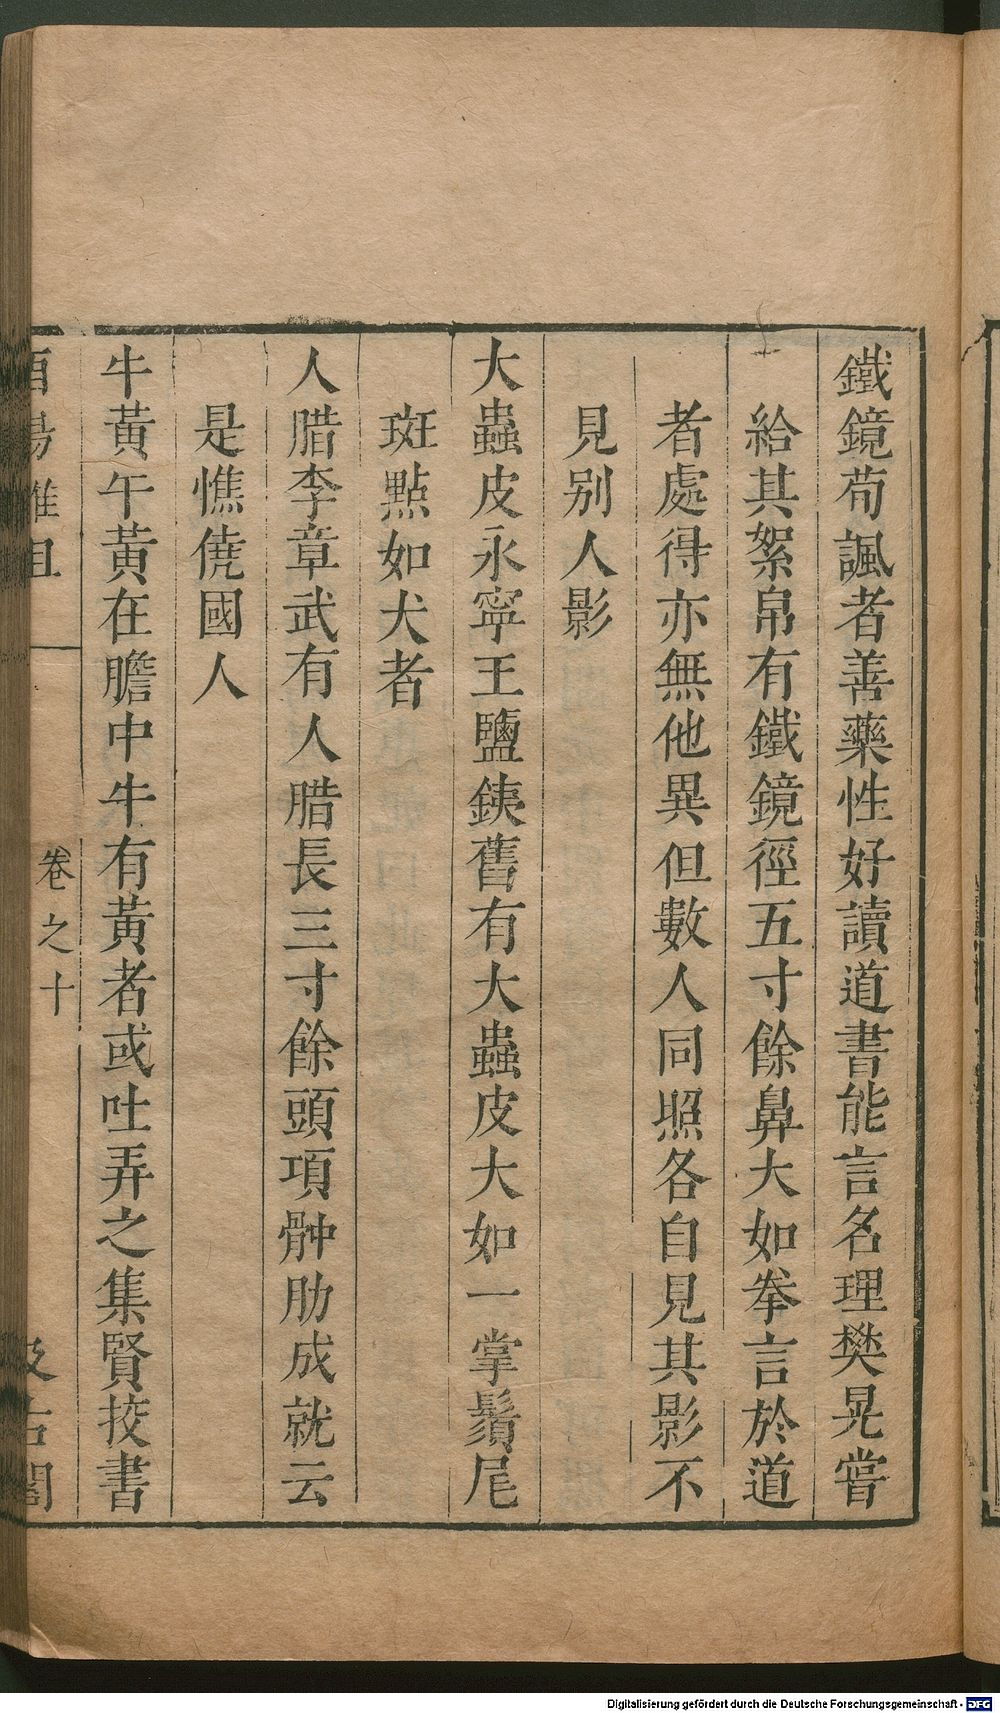 鐵鏡荀諷者善藥性好讀道書能言名理樊晃嘗
給其絮帛有鐵鏡徑五寸餘鼻大如拳言於道
者處得亦無他異但數人同照各自見其影不
見別人影
大蟲皮永寧王鹽鉄舊有大蟲皮大如一掌鬚尾
斑點如犬者
人腊李章武有人腊長三寸餘頭項骭肋成就云
是憔僥國人
牛黃午黃在膽中牛有黃者或吐弄之集賢挍書
酉陽雜俎
卷之十
汲古閣
Digitalisierung gefördert durch die Deutsche Forschungsgemeinschaft - DFG